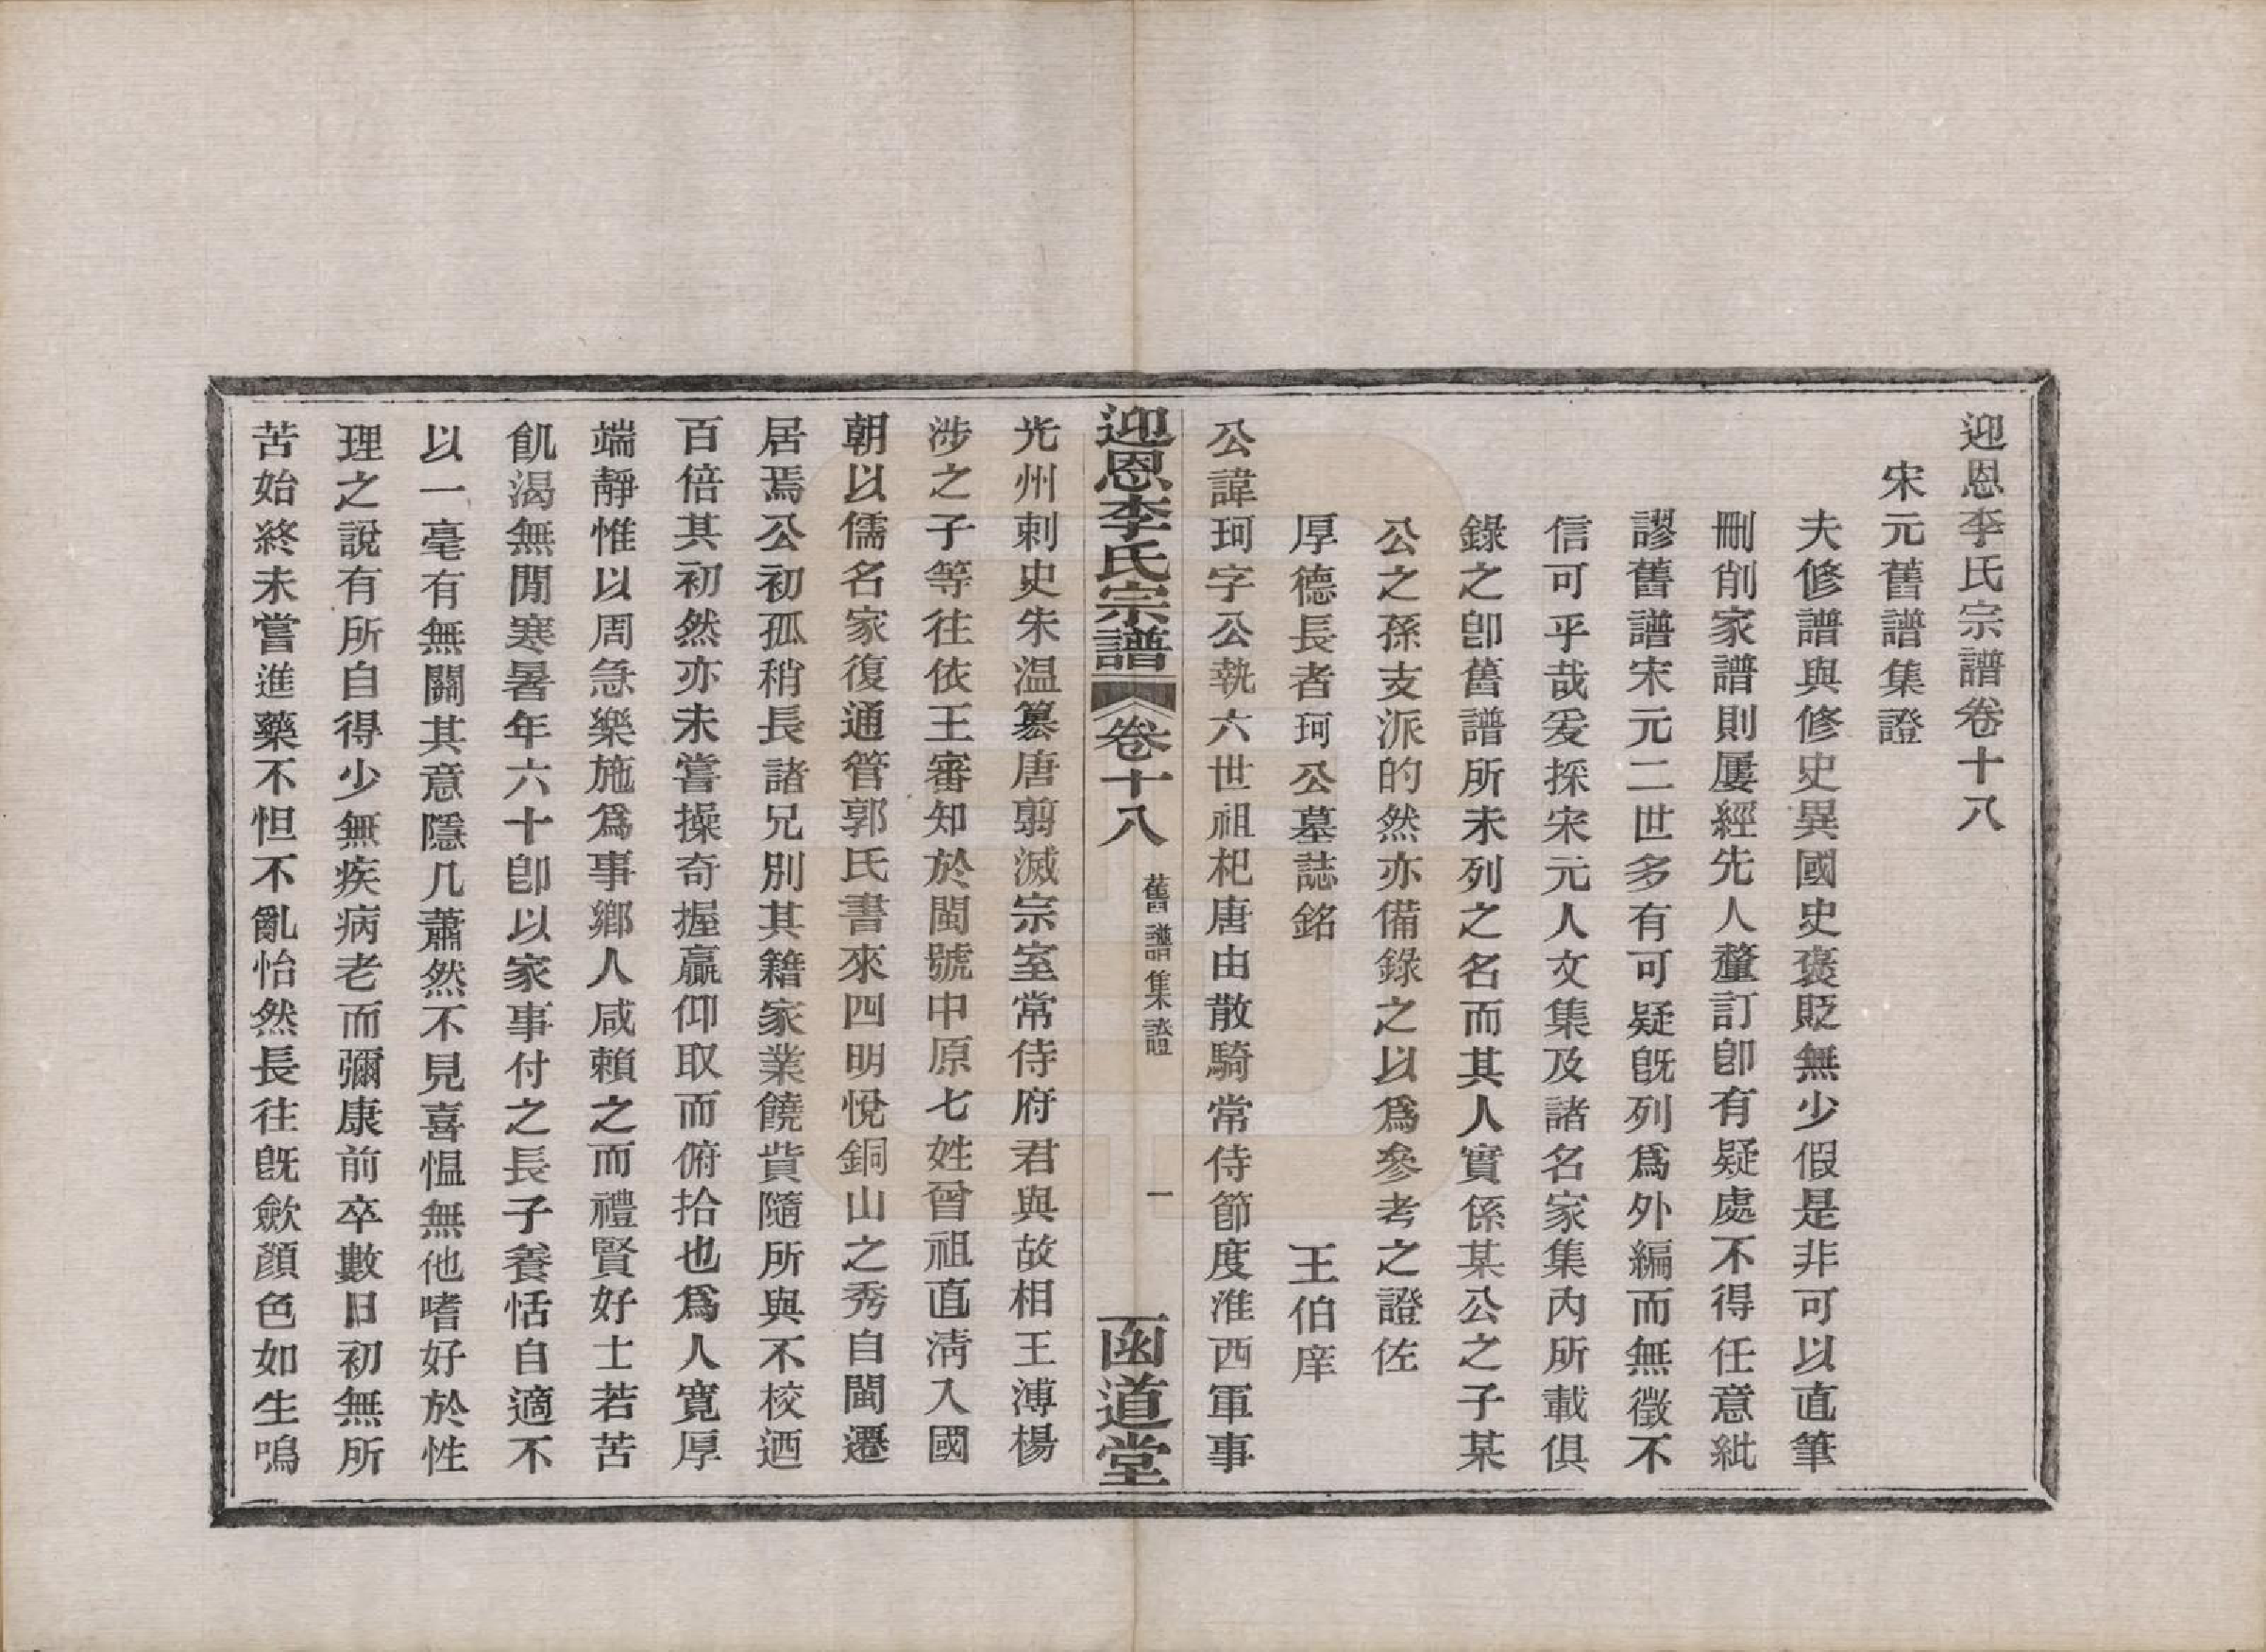 迎恩李氏宗譜卷十八
宋元舊譜集證
夫修譜與修史異國史褒貶無少假是非可以直筆
刪削家譜則屢經先人釐訂卽有疑處不得任意紕
謬舊譜宋元二世多有可疑旣列爲外編而無徵不
信可乎哉爰採宋元人文集及諸名家集內所載俱
錄之卽舊譜所未列之名而其人實係某公之子某
公之孫支派的然亦備錄之以爲參考之證佐
厚德長者珂公墓誌銘 王伯庠
公諱珂字公執六世祖杞唐由散騎常侍節度淮西軍事
迎恩李氏宗譜 卷十八 舊譜集證 一 函道堂
光州刺史朱温簒唐翦滅宗室常侍府君與故相王溥楊
涉之子等往依王審知於閩號中原七姓曾祖直淸入國
朝以儒名家復通管郭氏書來四明悅銅山之秀自閩遷
居焉公初孤稍長諸兄別其籍家業饒貲隨所與不校迺
百倍其初然亦未嘗操奇握贏仰取而俯拾也爲人寬厚
端靜惟以周急樂施爲事鄉人咸賴之而禮賢好士若苦
飢渴無閒寒暑年六十卽以家事付之長子養恬自適不
以一毫有無關其意隱几蕭然不見喜愠無他嗜好於性
理之說有所自得少無疾病老而彌康前卒數日初無所
苦始終未嘗進藥不怛不亂怡然長往旣歛顏色如生鳴